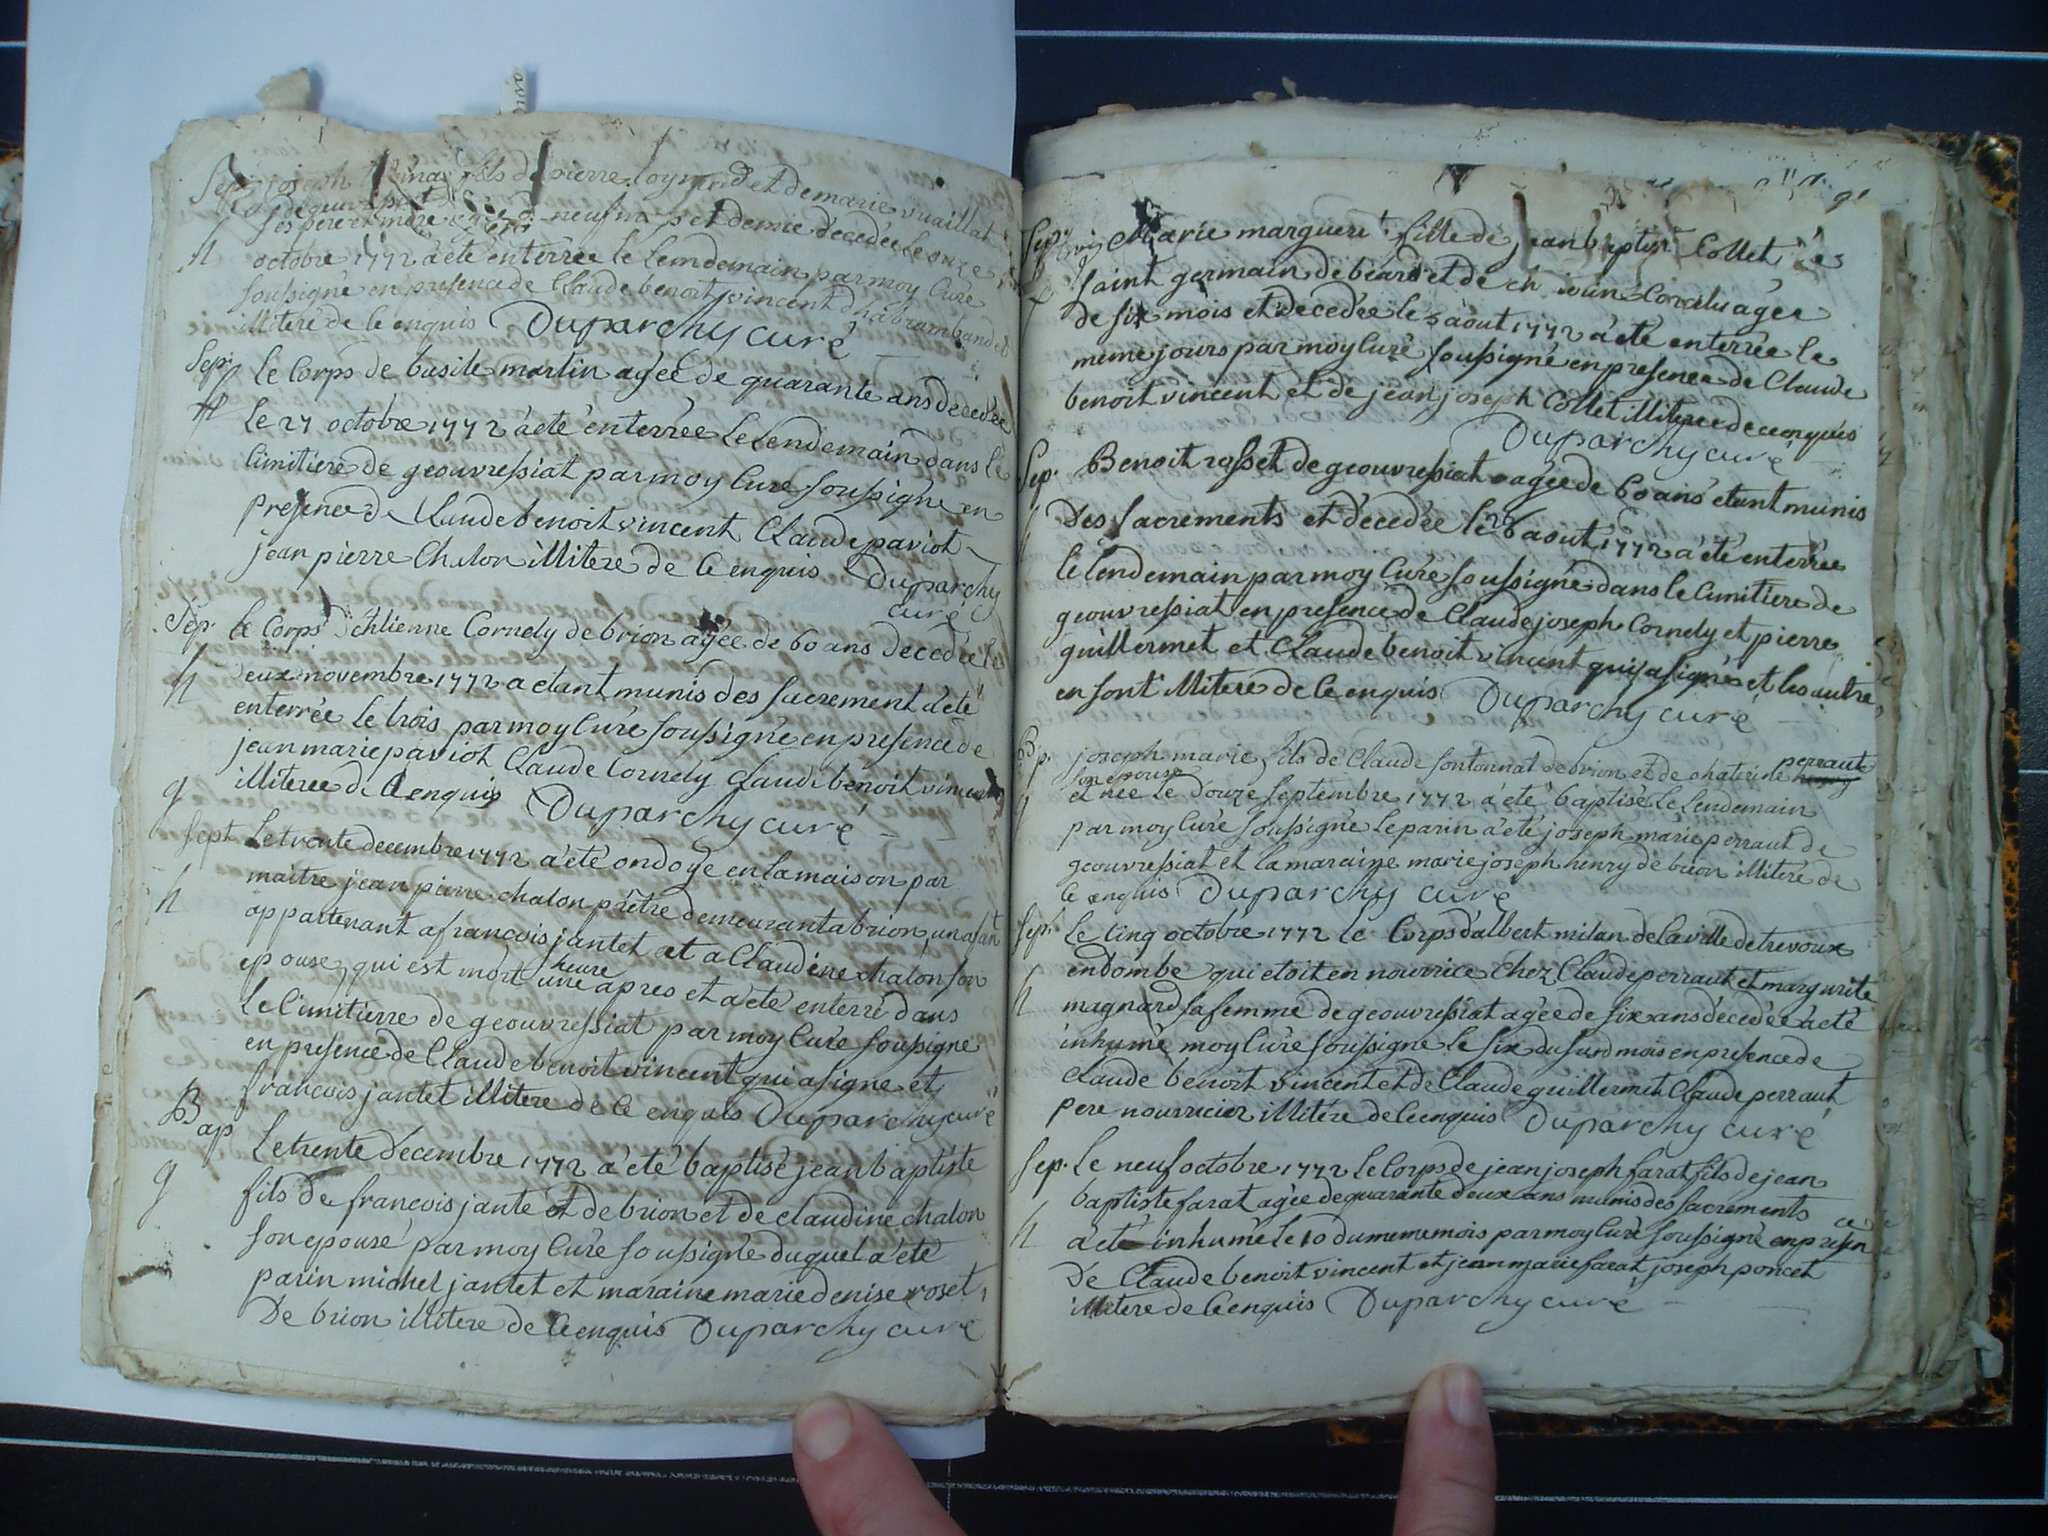 Sep. joseph fils de pierre oynard et de marie vuaillat
ses pere et mere neuf decedée le onze
h octobre 1772 a été enterrée le lemdemain par moy Curé
soussigné en presence de Claude benoit vincent
illiteré de ce enquis Duparchy curé
Sep. le Corps de basile martin agée de quarante ans decedée
h le 27 octobre 1772 a été enterrée le lendemain dans le
Cimitiere de geouvressiat par moy Curé soussigné en
presence de Claude benoit vincent Claude paviot
jean pierre Chalon illitere de Ce enquis Duparchy
curé
Sép. le Corps Cornely de brion agée de 60 ans decedée le
h deux novembre 1772 a etant munis des sacrement a été
enterrée le trois par moy Curé soussigné en presence de
jean marie paviot Claude Cornely Claude benoit vincent
illiteree de Cenquis Duparchy curé
g
Sept Le trente decembre 1772 a été ondoyé en la maison par
maitre jean pierre chalon prêtre demeurant a brion, un afant
h appartenant a francois jantet et a Claudine chalon son
epouse, qui est mort une heure apres et a été enterré dans
le Cimitierre de geouvressiat par moy Curé soussigne
en presence de Claude benoit vincent qui a signe et
francois jantet illitere de Ce enquis Duparchy curé
Bap Le trente decembre 1772 a été baptisé jean baptiste
g fils de francois janté et de brion et de claudine chalon
son epouse par moy Curé soussigné duquel a été
parin michel jantet et maraine marie denise roset,
De brion illitere de Ce enquis Duparchy curé
91
Sep. Marie marguerit fille de jean baptist Collet
saint germain de beard et de
de six mois et decedée le 5 aout 1772 a été enterrée le
meme jours par moy Curé soussigné en presence de Claude
benoit vincent et de jean joseph Collet illiteree de ce enquis
Duparchy curé
Sep. Benoit rosset de geouvressiat agée de 60 ans etant munis
Des sacrements et décedée le 26 aout 1772 a été enterrée
le lendemain par moy Curé soussigné dans le Cimitiere de
geouvressiat en presence de Claude joseph Cornely et pierre
guillermet et Claude benoit vincent qui a signés et les autre
en sont illiteré de Ce enquis Duparchy curé
Bp. joseph marie fils de Claude fontonnat de brion et de chaterine perraut
son epouse
g et née le douze septembre 1772 a été baptisé le lendemain
par moy Curé soussigné le parin a été joseph marie perraut de
geouvressiat et la maraine marie joseph henry de brion illiteré de
Ce enquis Duparchy curé
Sep. Le cinq octobre 1772 le Corps d'albert milan de la ville de trevoux
en dombe qui etoit en nourrice chez Claude perraut et margurite
h magnard sa femme de geouvressiat agée de six ans décedée a été
inhumé moy Curé soussigné le six du sud mois en presence de
Claude benoit vincent et de Claude guillermet Claude perraut
pere nourricier illiteré de Ce enquis Duparchy curé
Sep. Le neuf octobre 1772 le Corps de jean joseph farat fils de jean
baptiste farat agée de quarante deux ans munis des sacrements
h a été inhumé le 10 du meme mois par moy Curé soussigné en presen ce
De Claude benoit vincent et jean marie farat joseph poncet
illitere de Ce enquis Duparchy curé